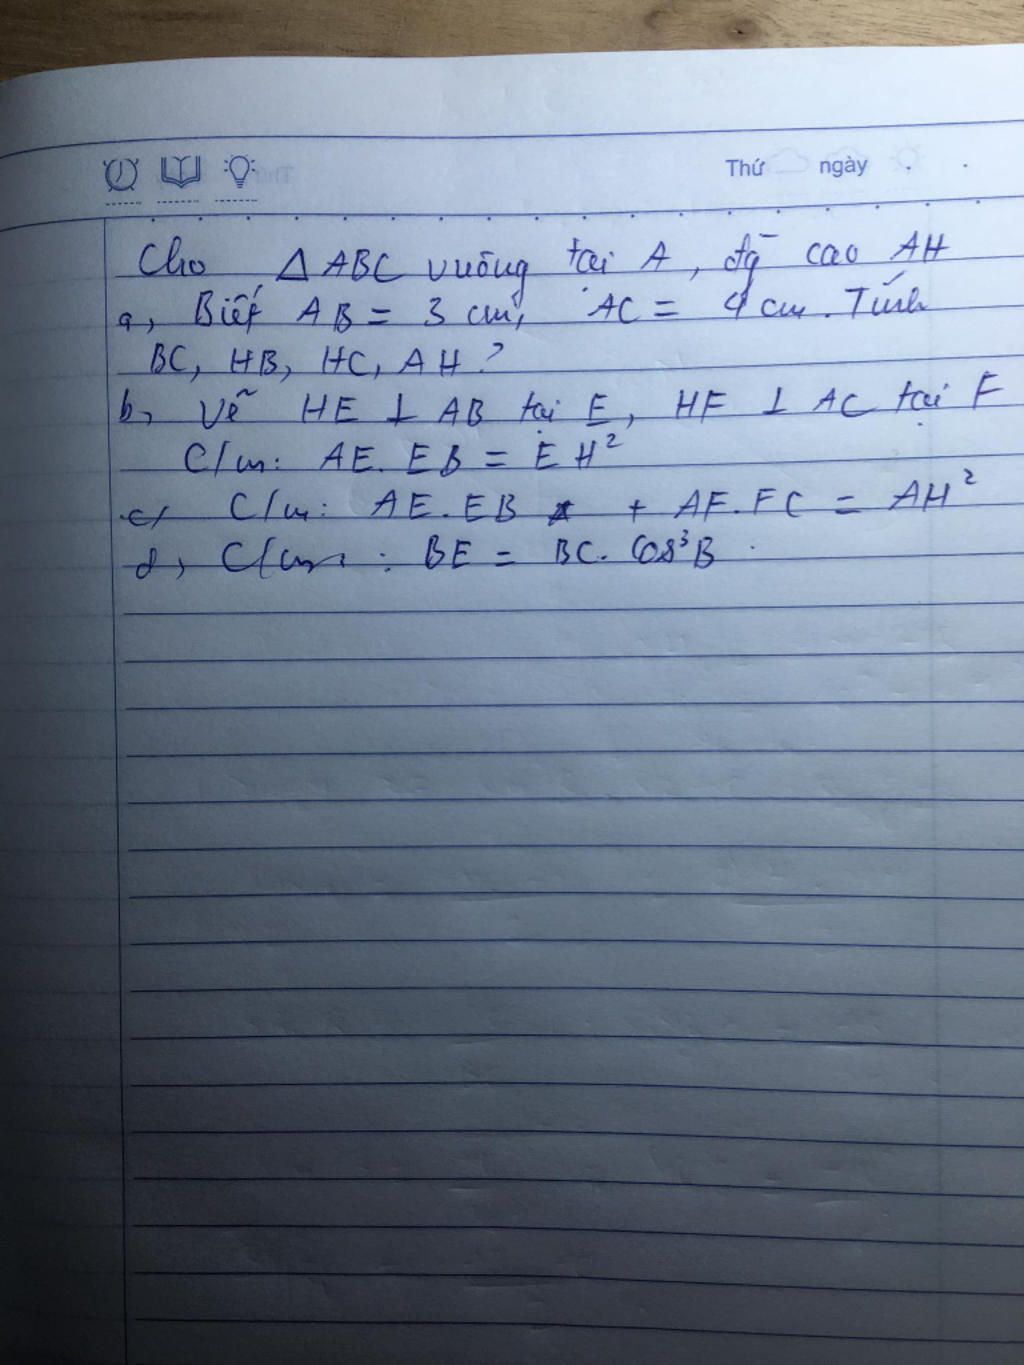 Thứ ngày
Cho △ABC vuông tại A, đg cao AH
a, Biết AB = 3 cm, AC = 4 cm. Tính
BC, HB, HC, AH?
b, Vẽ HE ⊥ AB tại E, HF ⊥ AC tại F
C/m: AE.EB = EH²
c/ C/m: AE.EB + AF.FC = AH²
d, C/m : BE = BC. Cos³B